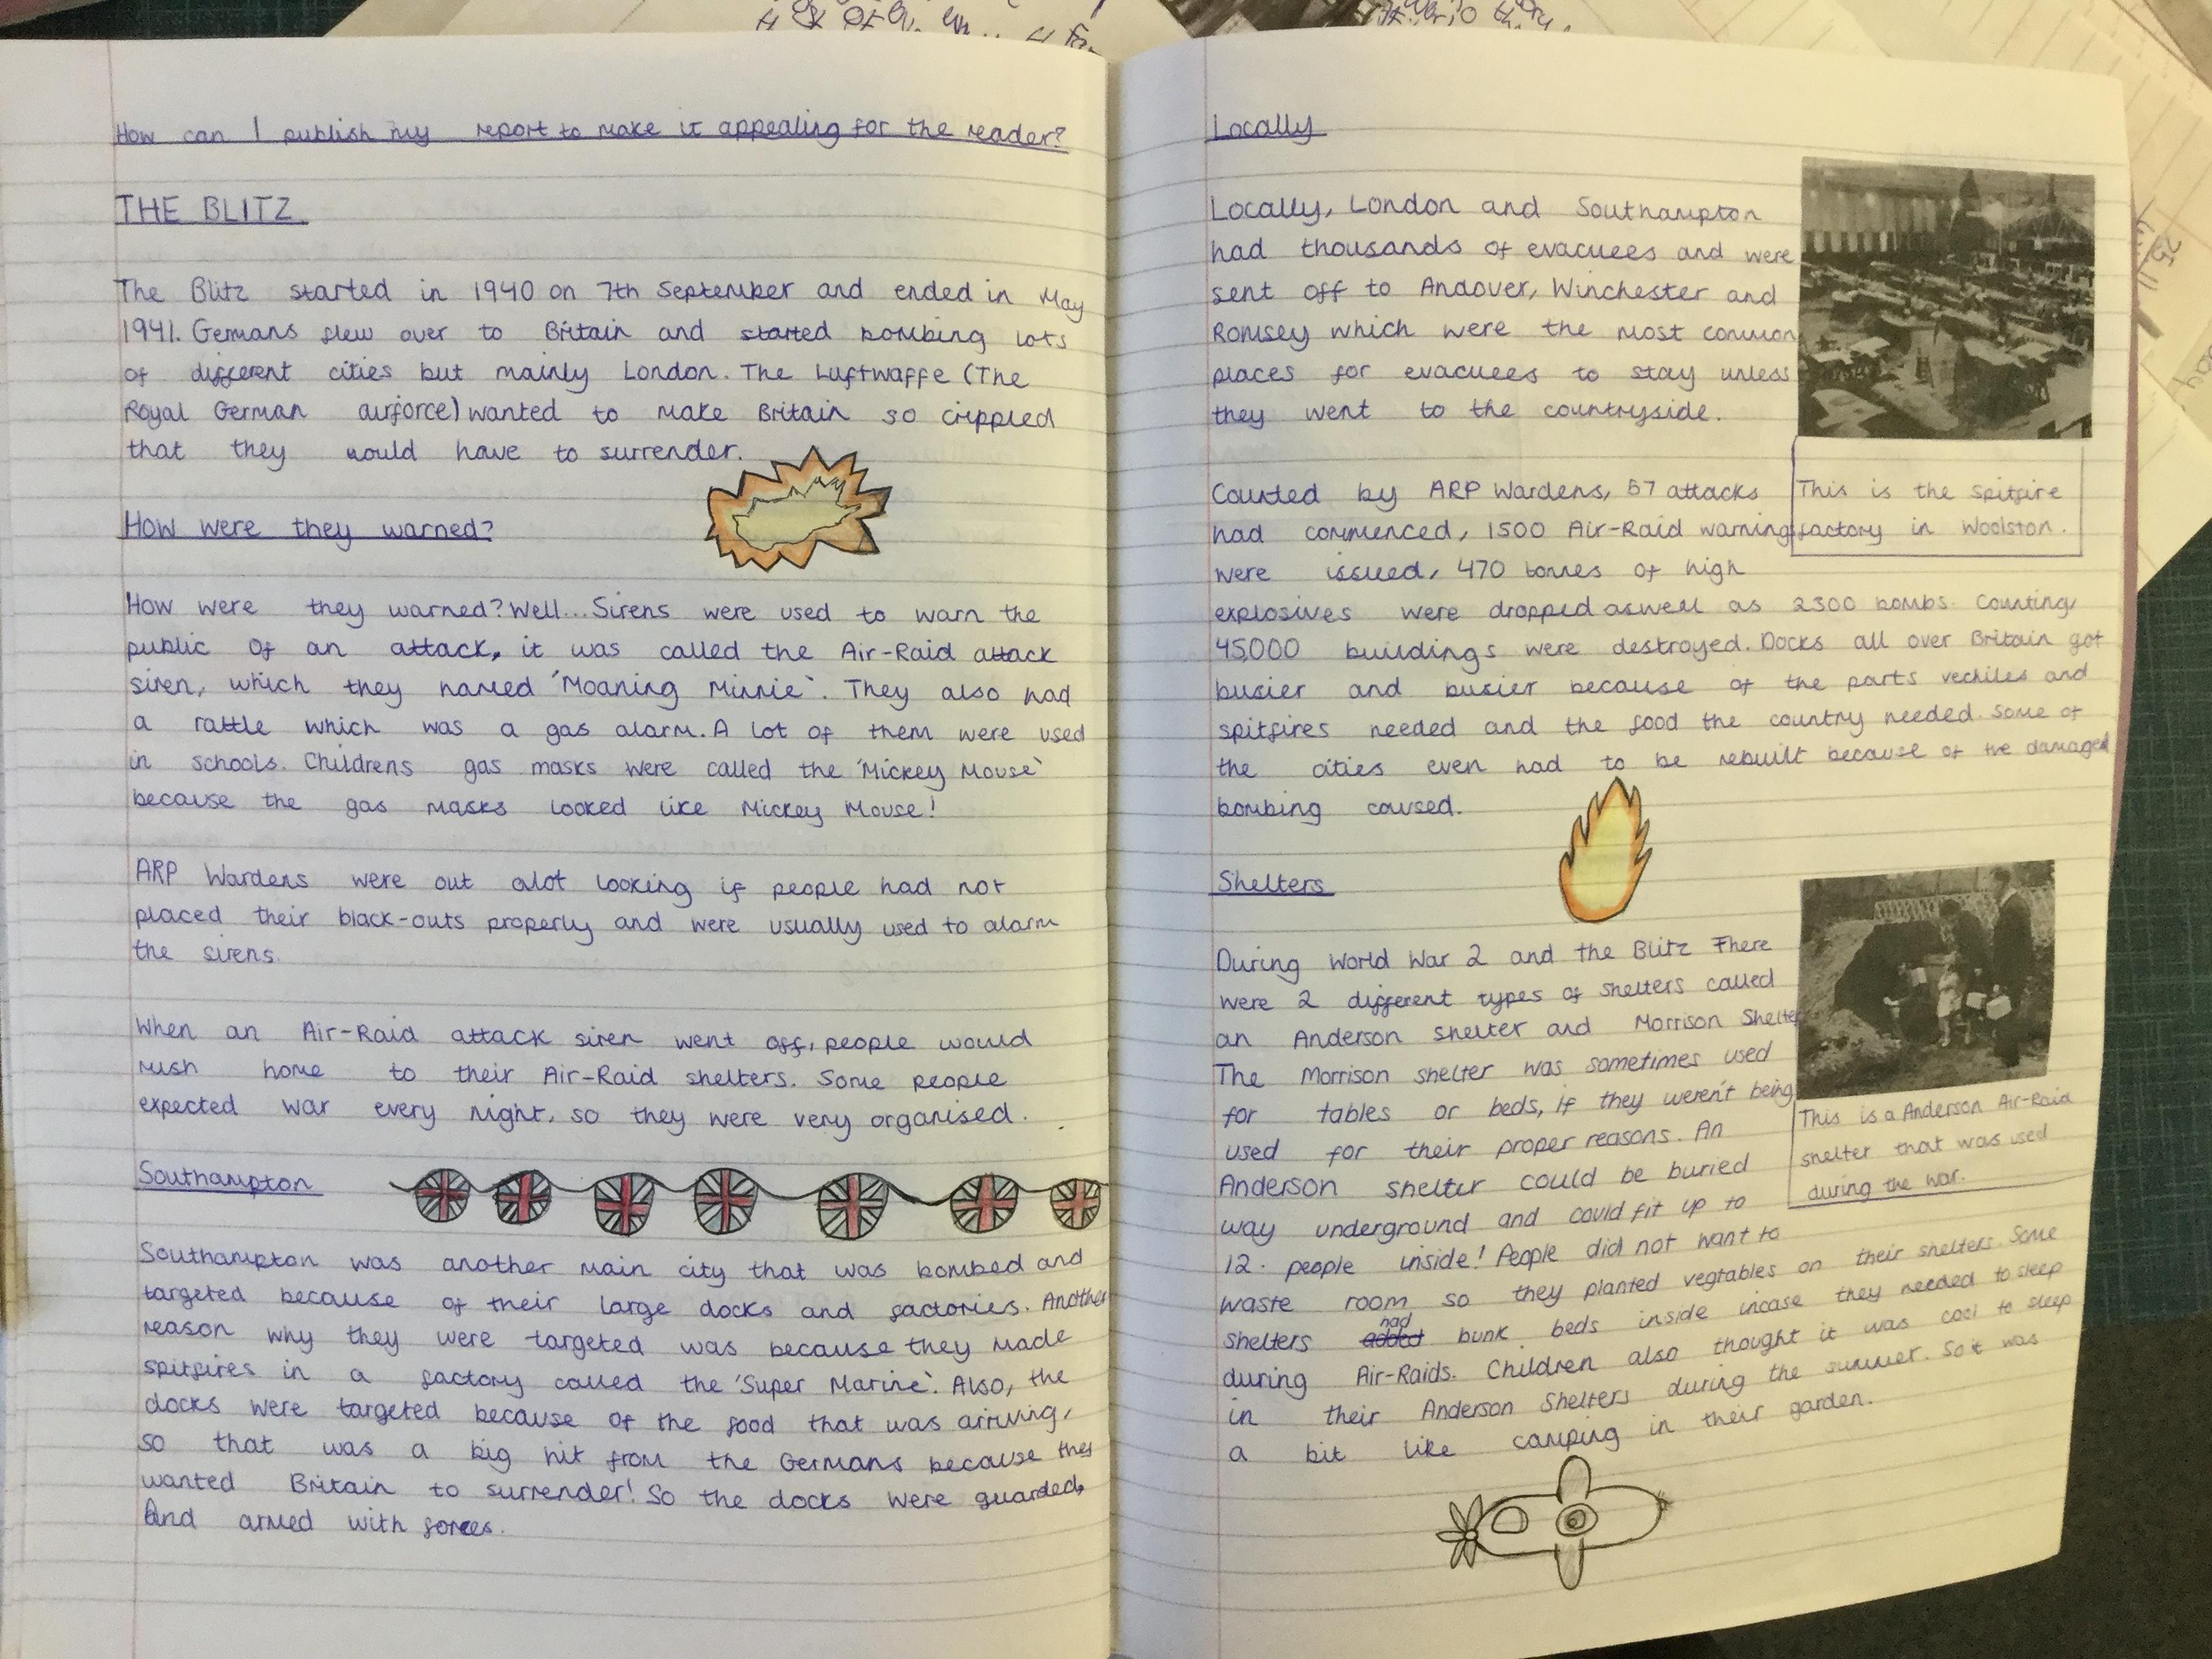 How can I publish my report to make it appealing for the reader?
THE BLITZ
The Blitz started in 1940 on 7th September and ended in May
1941. Germans flew over to Britain and started bombing lots
of different cities but mainly London. The Luftwaffe (The
Royal German airforce) wanted to make Britain so crippled
that they would have to surrender.
How were they warned?
How were they warned? Well... Sirens were used to warn the
public of an attack, it was called the Air-Raid attack
siren, which they named 'Moaning Minnie'. They also had
a rattle which was a gas alarm. A lot of them were used
in schools. Childrens gas masks were called the 'Mickey Mouse'
because the gas masks looked like Mickey Mouse!
ARP Wardens were out alot looking if people had not
placed their black-outs properly and were usually used to alarm
the sirens.
When an Air-Raid attack siren went off, people would
rush home to their Air-Raid shelters. Some people
expected war every night, so they were very organised.
Southampton
Southampton was another main city that was bombed and
targeted because of their large docks and factories. Another
reason why they were targeted was because they made
spitfires in a factory called the 'Super Marine'. Also, the
docks were targeted because of the food that was arriving,
so that was a big hit from the Germans because they
wanted Britain to surrender! So the docks were guarded,
And armed with forces.
Locally
Locally, London and Southampton
had thousands of evacuees and were
sent off to Andover, Winchester and
Romsey which were the most common
places for evacuees to stay unless
they went to the countryside.
Counted by ARP Wardens, 57 attacks
had commenced, 1500 Air-Raid warnings
were issued, 470 tonnes of high
explosives were dropped aswell as 2300 bombs. Counting,
45,000 buildings were destroyed. Docks all over Britain got
busier and busier because of the parts vechiles and
spitfires needed and the food the country needed. Some of
the cities even had to be rebuilt because of the damaged
bombing caused.
This is the Spitfire
factory in Woolston.
Shelters
During World War 2 and the Blitz There
were 2 different types of shelters called
an Anderson shelter and Morrison Shelter
The Morrison shelter was sometimes used
for tables or beds, if they weren't being
used for their proper reasons. An
Anderson shelter could be buried
way underground and could fit up to
12. people inside! People did not want to
waste room so they planted vegtables on their shelters. Some
shelters added had bunk beds inside incase they needed to sleep
during Air-Raids. Children also thought it was cool to sleep
in their Anderson Shelters during the summer. So it was
a bit like camping in their garden.
This is a Anderson Air-Raid
shelter that was used
during the war.